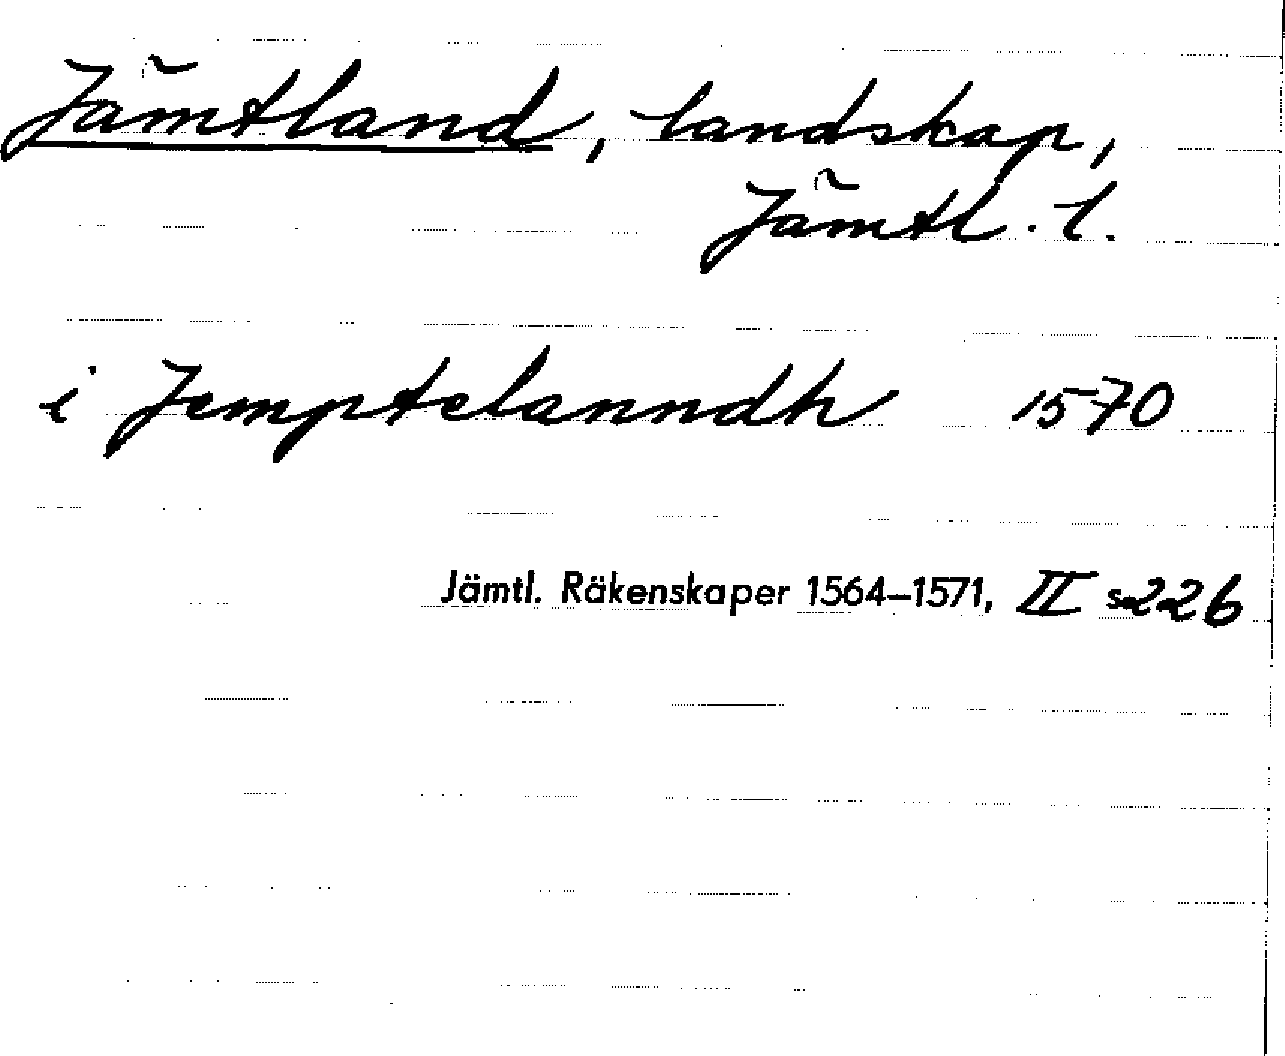 Jämtland, landskap,
Jämtl. l.
i Jemptelanndh 1570
Jämtl. Räkenskaper 1564–1571, II s. 226